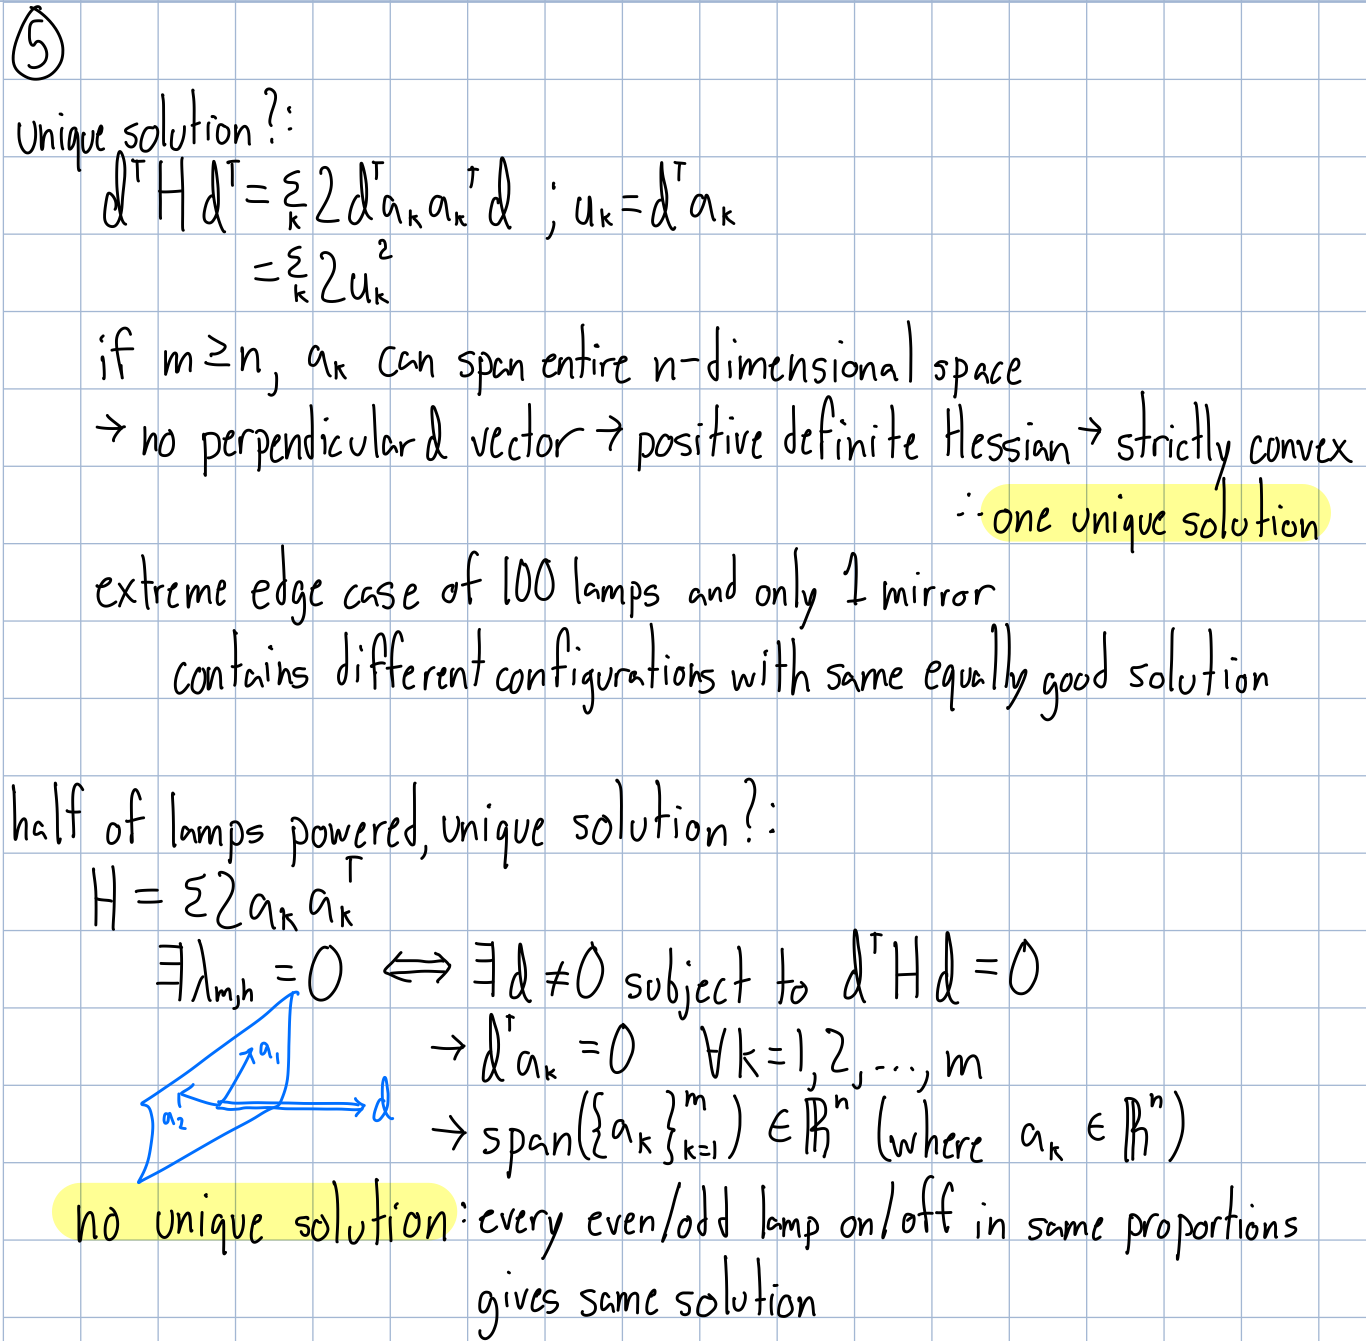 ⑤
unique solution?:
dᵀHdᵀ = Σₖ 2dᵀaₖaₖᵀd ; uₖ = dᵀaₖ
= Σₖ 2uₖ²
if m ≥ n, aₖ can span entire n-dimensional space
→ no perpendicular d vector → positive definite Hessian → strictly convex
∴ one unique solution
extreme edge case of 100 lamps and only 1 mirror
contains different configurations with same equally good solution
half of lamps powered, unique solution?:
H = Σ2aₖaₖᵀ
∃λ = 0 ⟺ ∃d ≠ 0 subject to dᵀHd = 0
→ dᵀaₖ = 0 ∀k=1,2,..., m
a₁
a₂
d
→ span({aₖ}ᵐₖ₌₁) ∈ ℝⁿ (where aₖ ∈ ℝⁿ)
no unique solution: every even/odd lamp on/off in same proportions
gives same solution